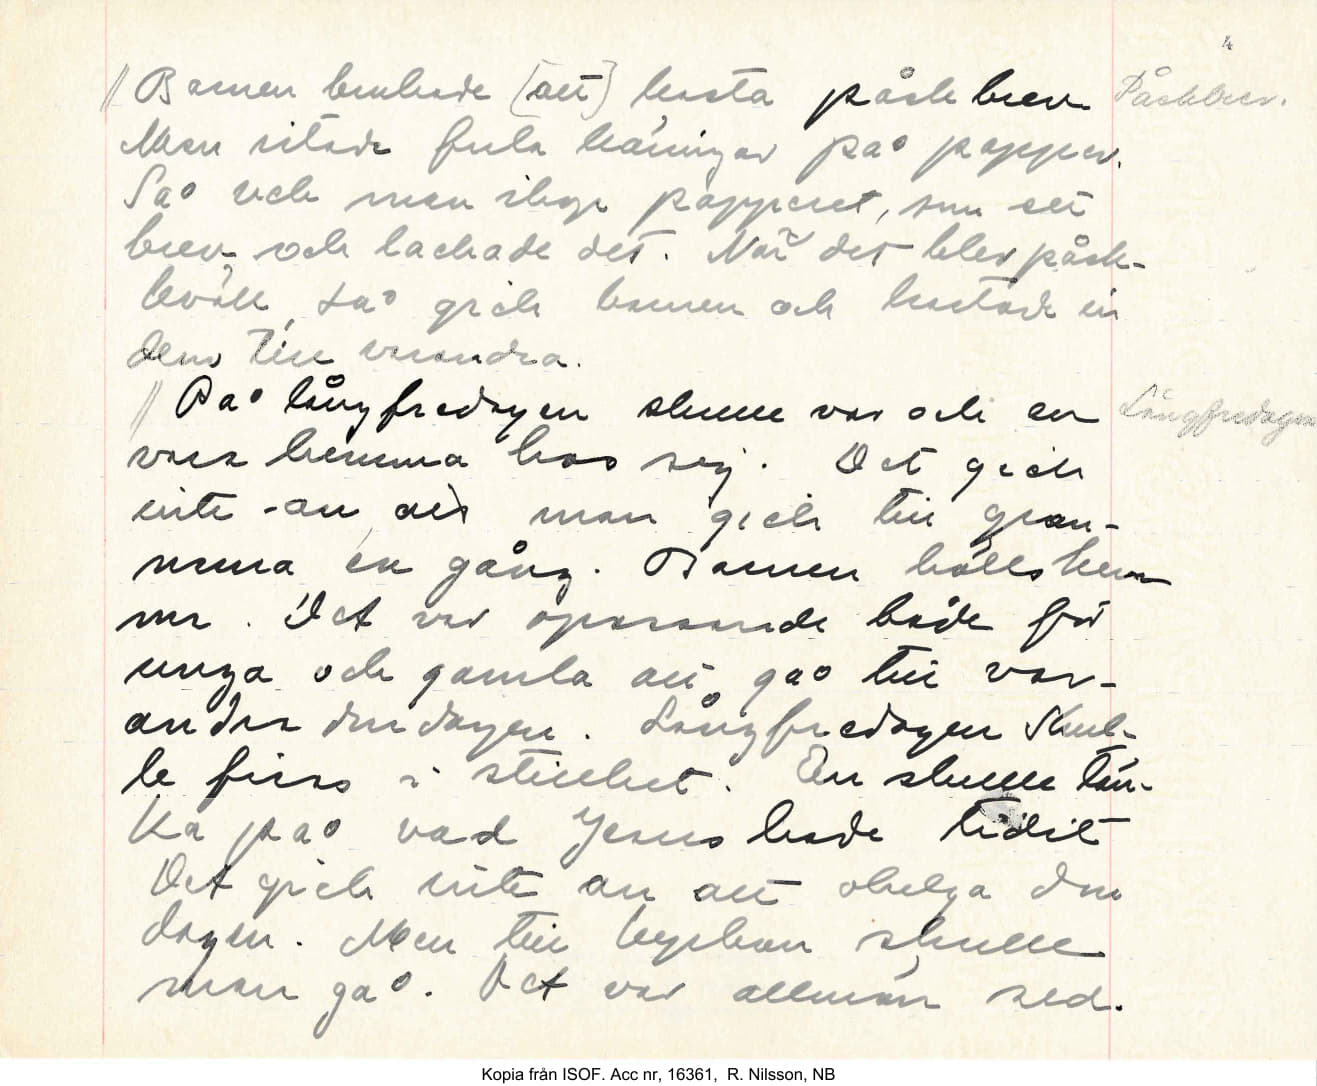 4
// Barnen brukade [att] kasta påskbrev. Påskbrev.
Man ritade fula käringar på papper.
Så vek man ihop papperet, som ett
brev och lackade det. När det blev påsk-
kväll, så gick barnen och kastade in
dem till varandra.
// På långfredagen skulle var och en Långfredagen
vara hemma hos sej. Det gick
inte an att man gick till gran-
narna en gång. Barnen hölls hem
ma. Det var opassande både för
unga och gamla att gå till var-
andra den dagen. Långfredagen skul-
le firas i stillhet. En skulle tän-
ka på vad Jesus hade lidit
Det gick inte an att ohelga den
dagen. Men till kyrkan skulle
man gå. Det var allmän sed.
Kopia från ISOF. Acc nr, 16361, R. Nilsson, NB